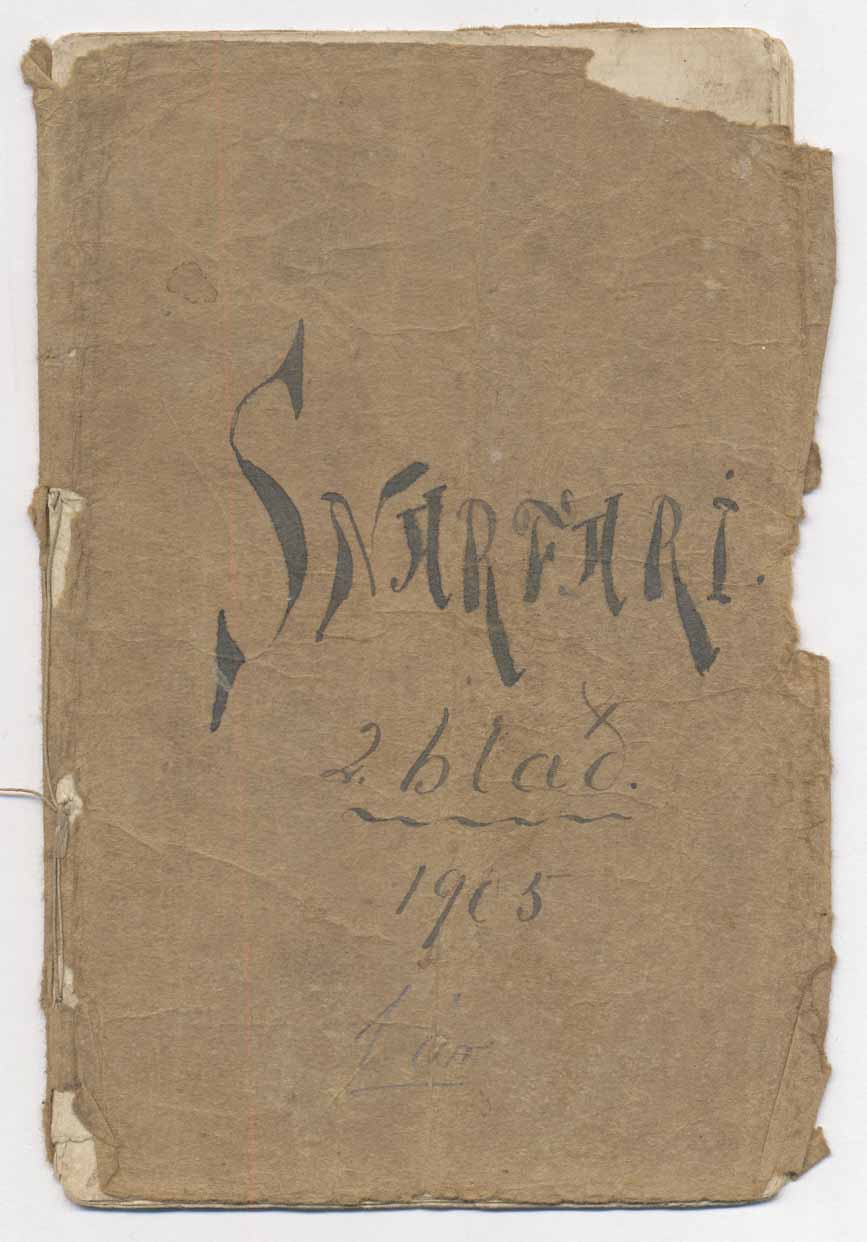 SNARFARI.
2. blað.
1905
1. ár